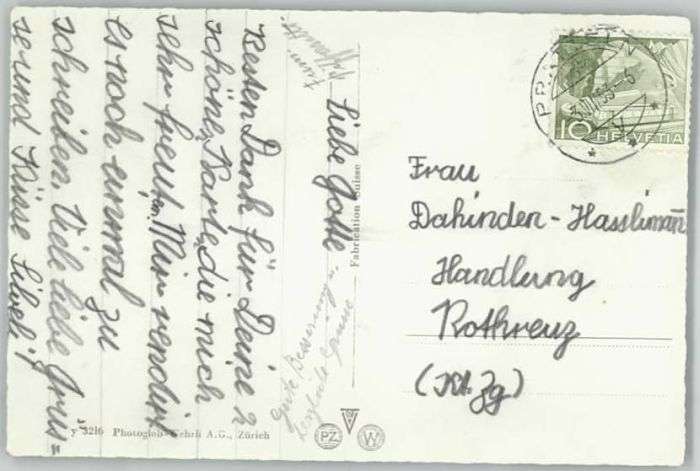 Liebe Gotte
Besten Dank für Deine
schöne Karte, die mich
sehr freut. Mir
es noch einmal zu
schreiben. Viele liebe Grüs=
se und Küsse
Gute Besserung u.
herzliche Grüsse
Fabrication Suisse
y 3216 Photoglob-Wehrli A.G., Zürich
PZ
W
10
HELVETIA
Frau
Dahinden-Hasslimann
Handlung
Rothreuz
(Kt. Zg)